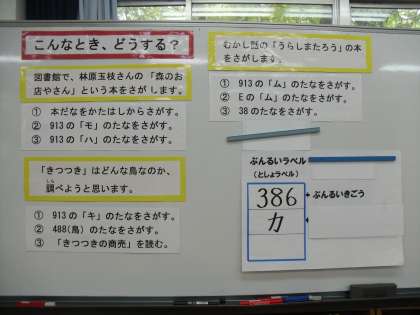 こんなとき、どうする？
図書館で、林原玉枝さんの「森のお
店やさん」という本をさがします。
① 本だなをかたはしからさがす。
② 913の「モ」のたなをさがす。
③ 913の「ハ」のたなをさがす。
「きつつき」はどんな鳥なのか、
調べようと思います。
① 913の「キ」のたなをさがす。
② 488(鳥)のたなをさがす。
③ 「きつつきの商売」を読む。
むかし話の「うらしまたろう」の本
をさがします。
① 913の「ム」のたなをさがす。
② Eの「ム」のたなをさがす。
③ 38のたなをさがす。
ぶんるいラベル
(としょラベル)
386
カ
ぶんるいきごう